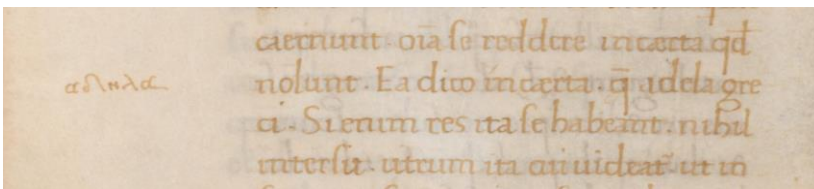 caernunt. oı̄a se reddere incaerta. qđ
αδηλα
nolunt. Ea dico incaerta. q̄ adela gre
ci. Si enim res ita se habeant. nihil
intersit. utrum ita cui uideat᷑ ut in